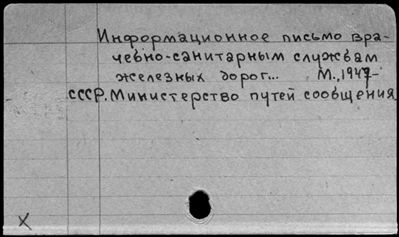 Информационное письмо вра-
чебно-санитарным службам
железных дорог... М., 1947-
СССР. Министерство путей сообщения.
X